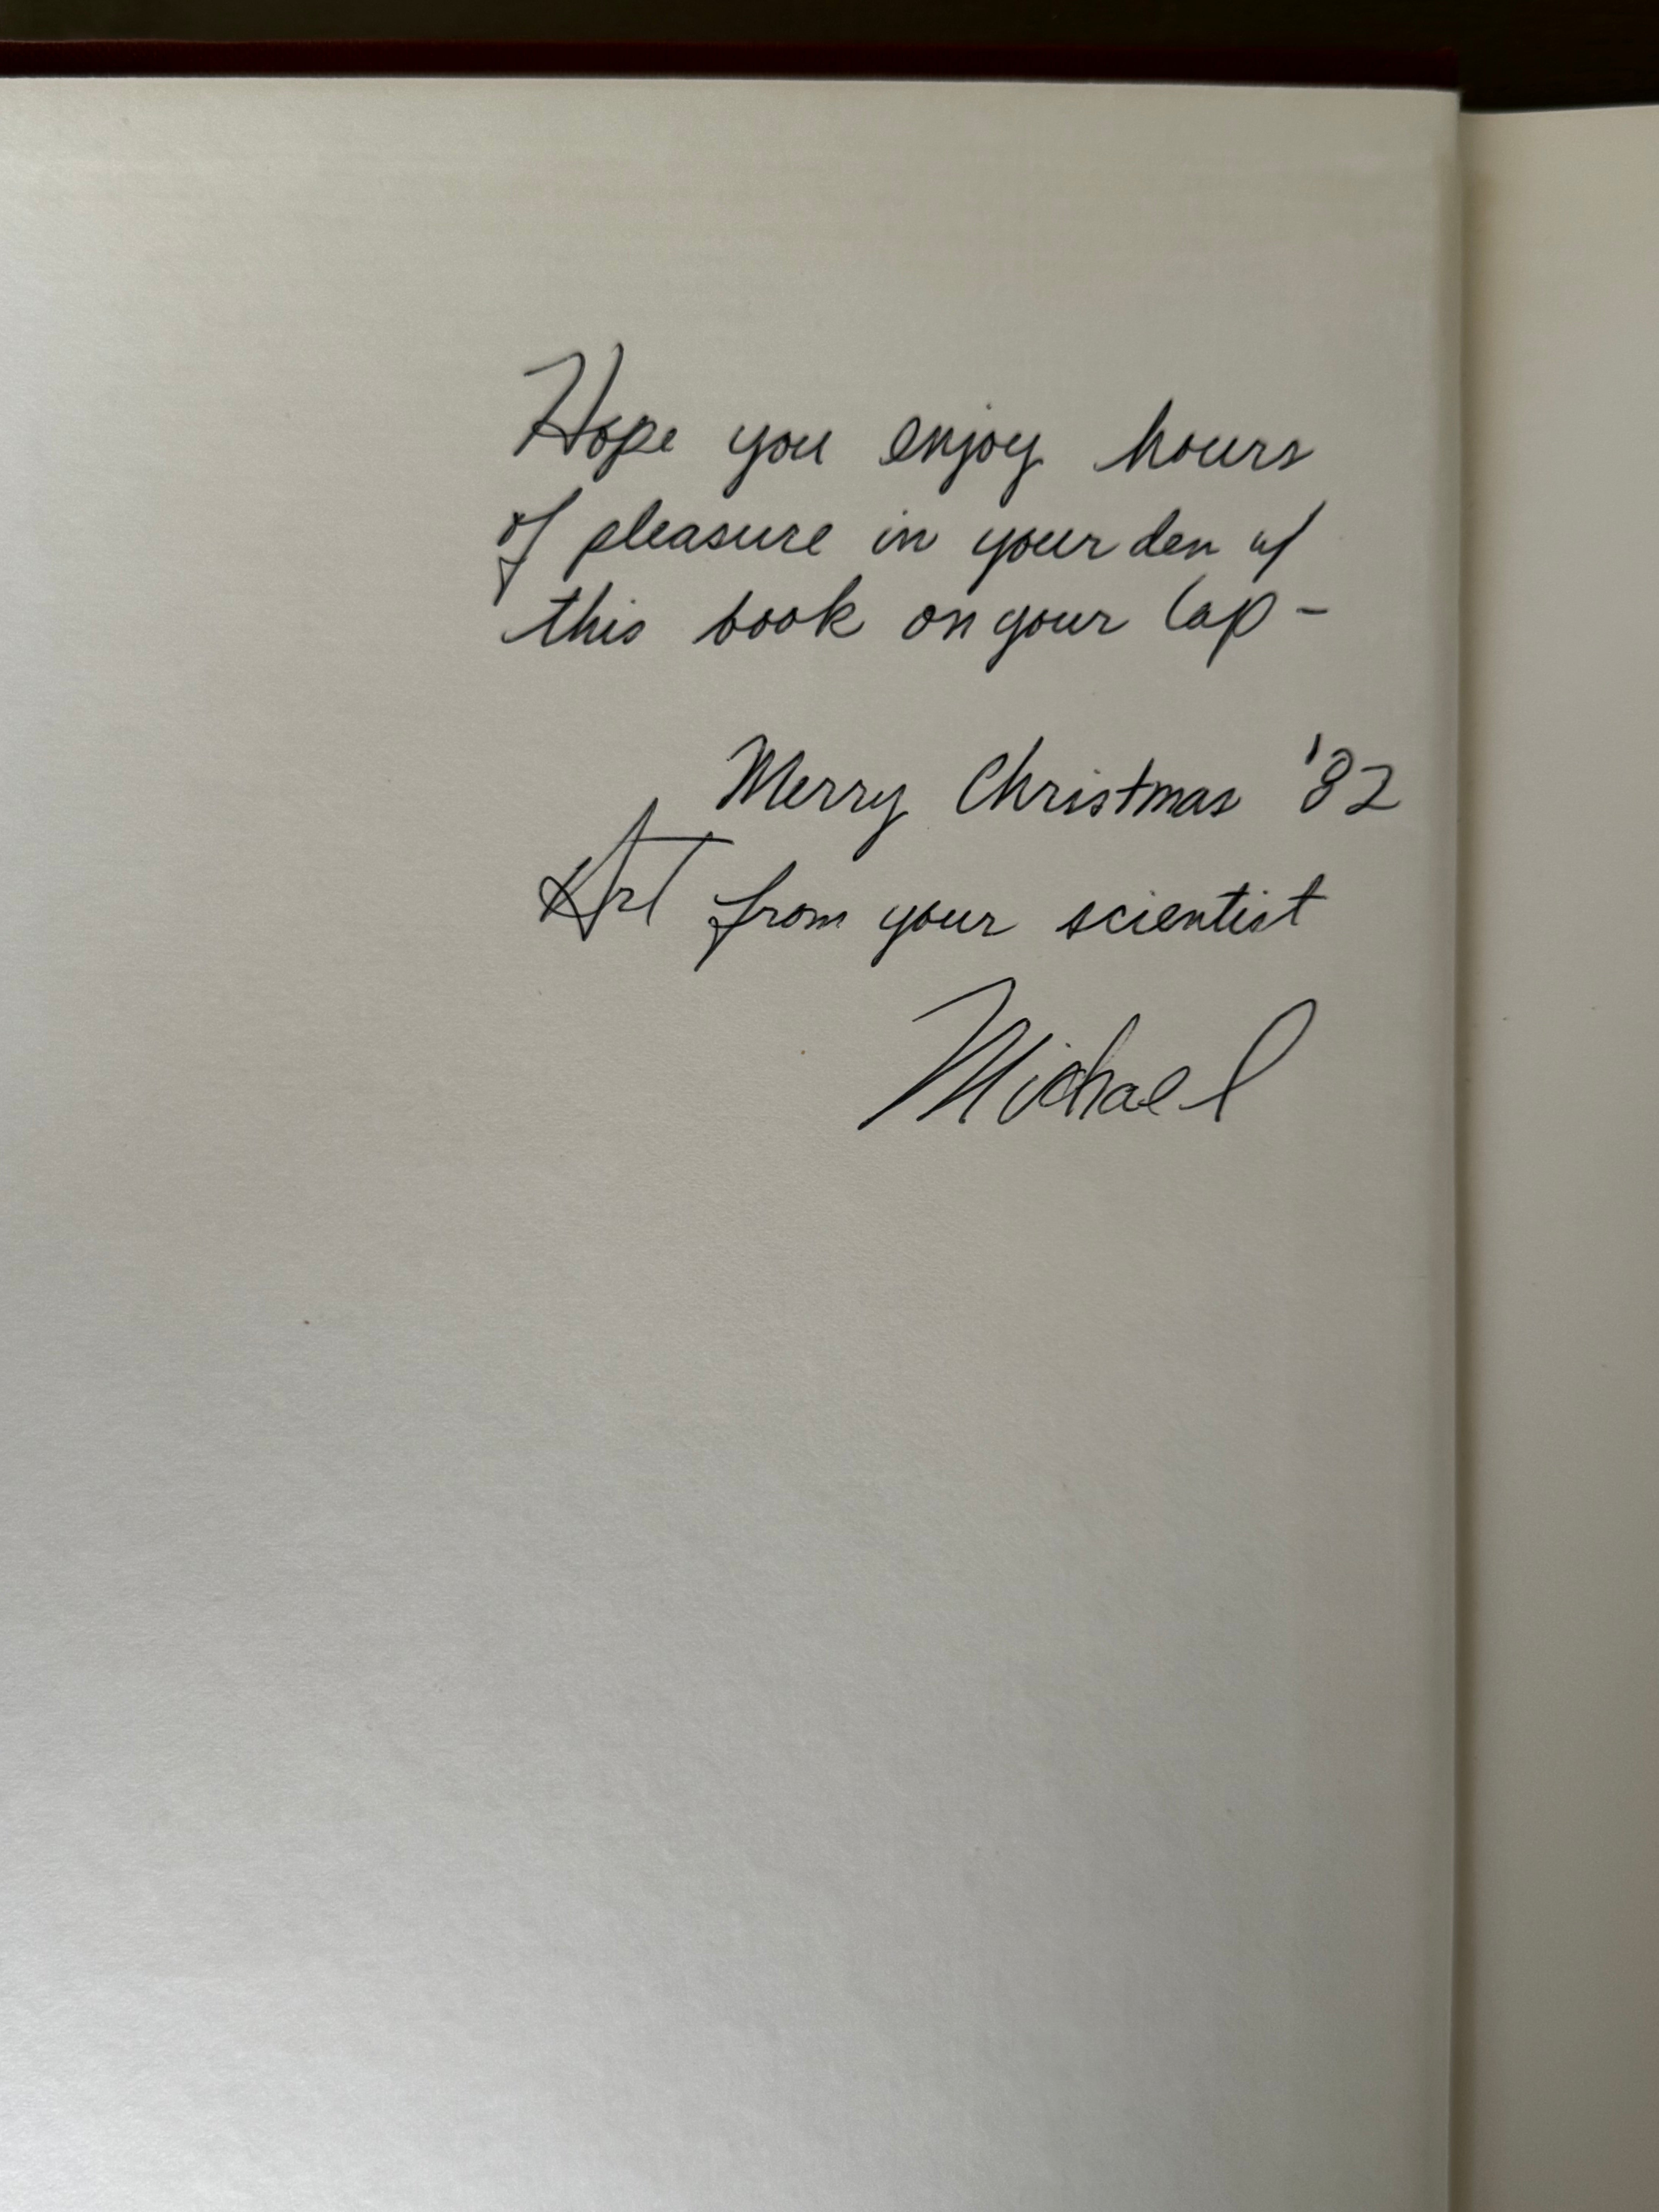 Hope you enjoy hours
of pleasure in your den w/
this book on your lap -
Merry Christmas '82
Art from your scientist
Michael